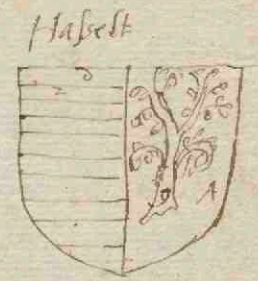 Hasselt
A